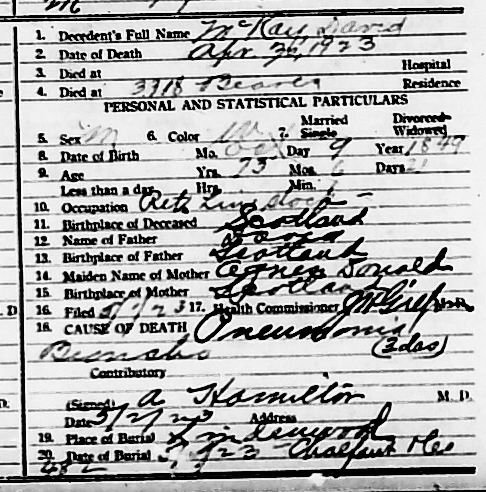 1. Decedent's Full Name McKay, David
2. Date of Death Apr 30, 1923
3. Died at Hospital
4. Died at 3318 Residence
PERSONAL AND STATISTICAL PARTICULARS
5. Sex M 6. Color W 7. Married Single Divorced Widowed
8. Date of Birth Mo. Oct Day 9 Year 1849
9. Age Yrs. 73 Mos. 6 Days 21
Less than a day Hrs. Min.
10. Occupation Retd Live Stock
11. Birthplace of Deceased Scotland
12. Name of Father David
13. Birthplace of Father Scotland
14. Maiden Name of Mother Agnes Donald
15. Birthplace of Mother Scotland
16. Filed 5/2/23 17. Health Commissioner
18. CAUSE OF DEATH Pneumonia
Broncho (3 das)
Contributory
(Signed) A Hamilton M. D.
Date 5/2/23 Address
19. Place of Burial Lindenwood
20. Date of Burial 5/ 23 Chalfant